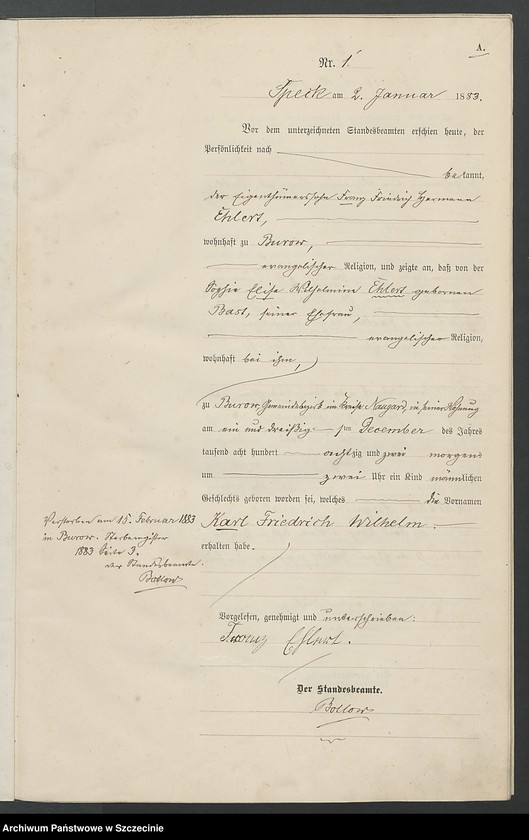 A.
Nr. 1.
Speck am 2. Januar 1883.
Vor dem unterzeichneten Standesbeamten erschien heute, der
Persönlichkeit nach
bekannt,
der Eigenthümersohn Franz Friedrich Hermann
Ehlert,
wohnhaft zu Burow,
evangelischer Religion, und zeigte an, daß von der
Sophie Elise Wilhelmine Ehlert gebornen
Bast, seiner Ehefrau,
evangelischer Religion,
wohnhaft bei ihm,
zu Burow, Gemeindebezirk im Kreise Naugard, in seiner Wohnung
am ein und dreißigsten December des Jahres
tausend acht hundert achtzig und zwei morgens
um zwei Uhr ein Kind männlichen
Geschlechts geboren worden sei, welches die Vornamen
Karl Friedrich Wilhelm
erhalten habe.
Verstorben am 15. Februar 1883
in Burow. Sterberegister
1883 Seite 3.
der Standesbeamte.
Bollow
Vorgelesen, genehmigt und unterschrieben:
Franz Ehlert.
Der Standesbeamte.
Bollow
Archiwum Państwowe w Szczecinie